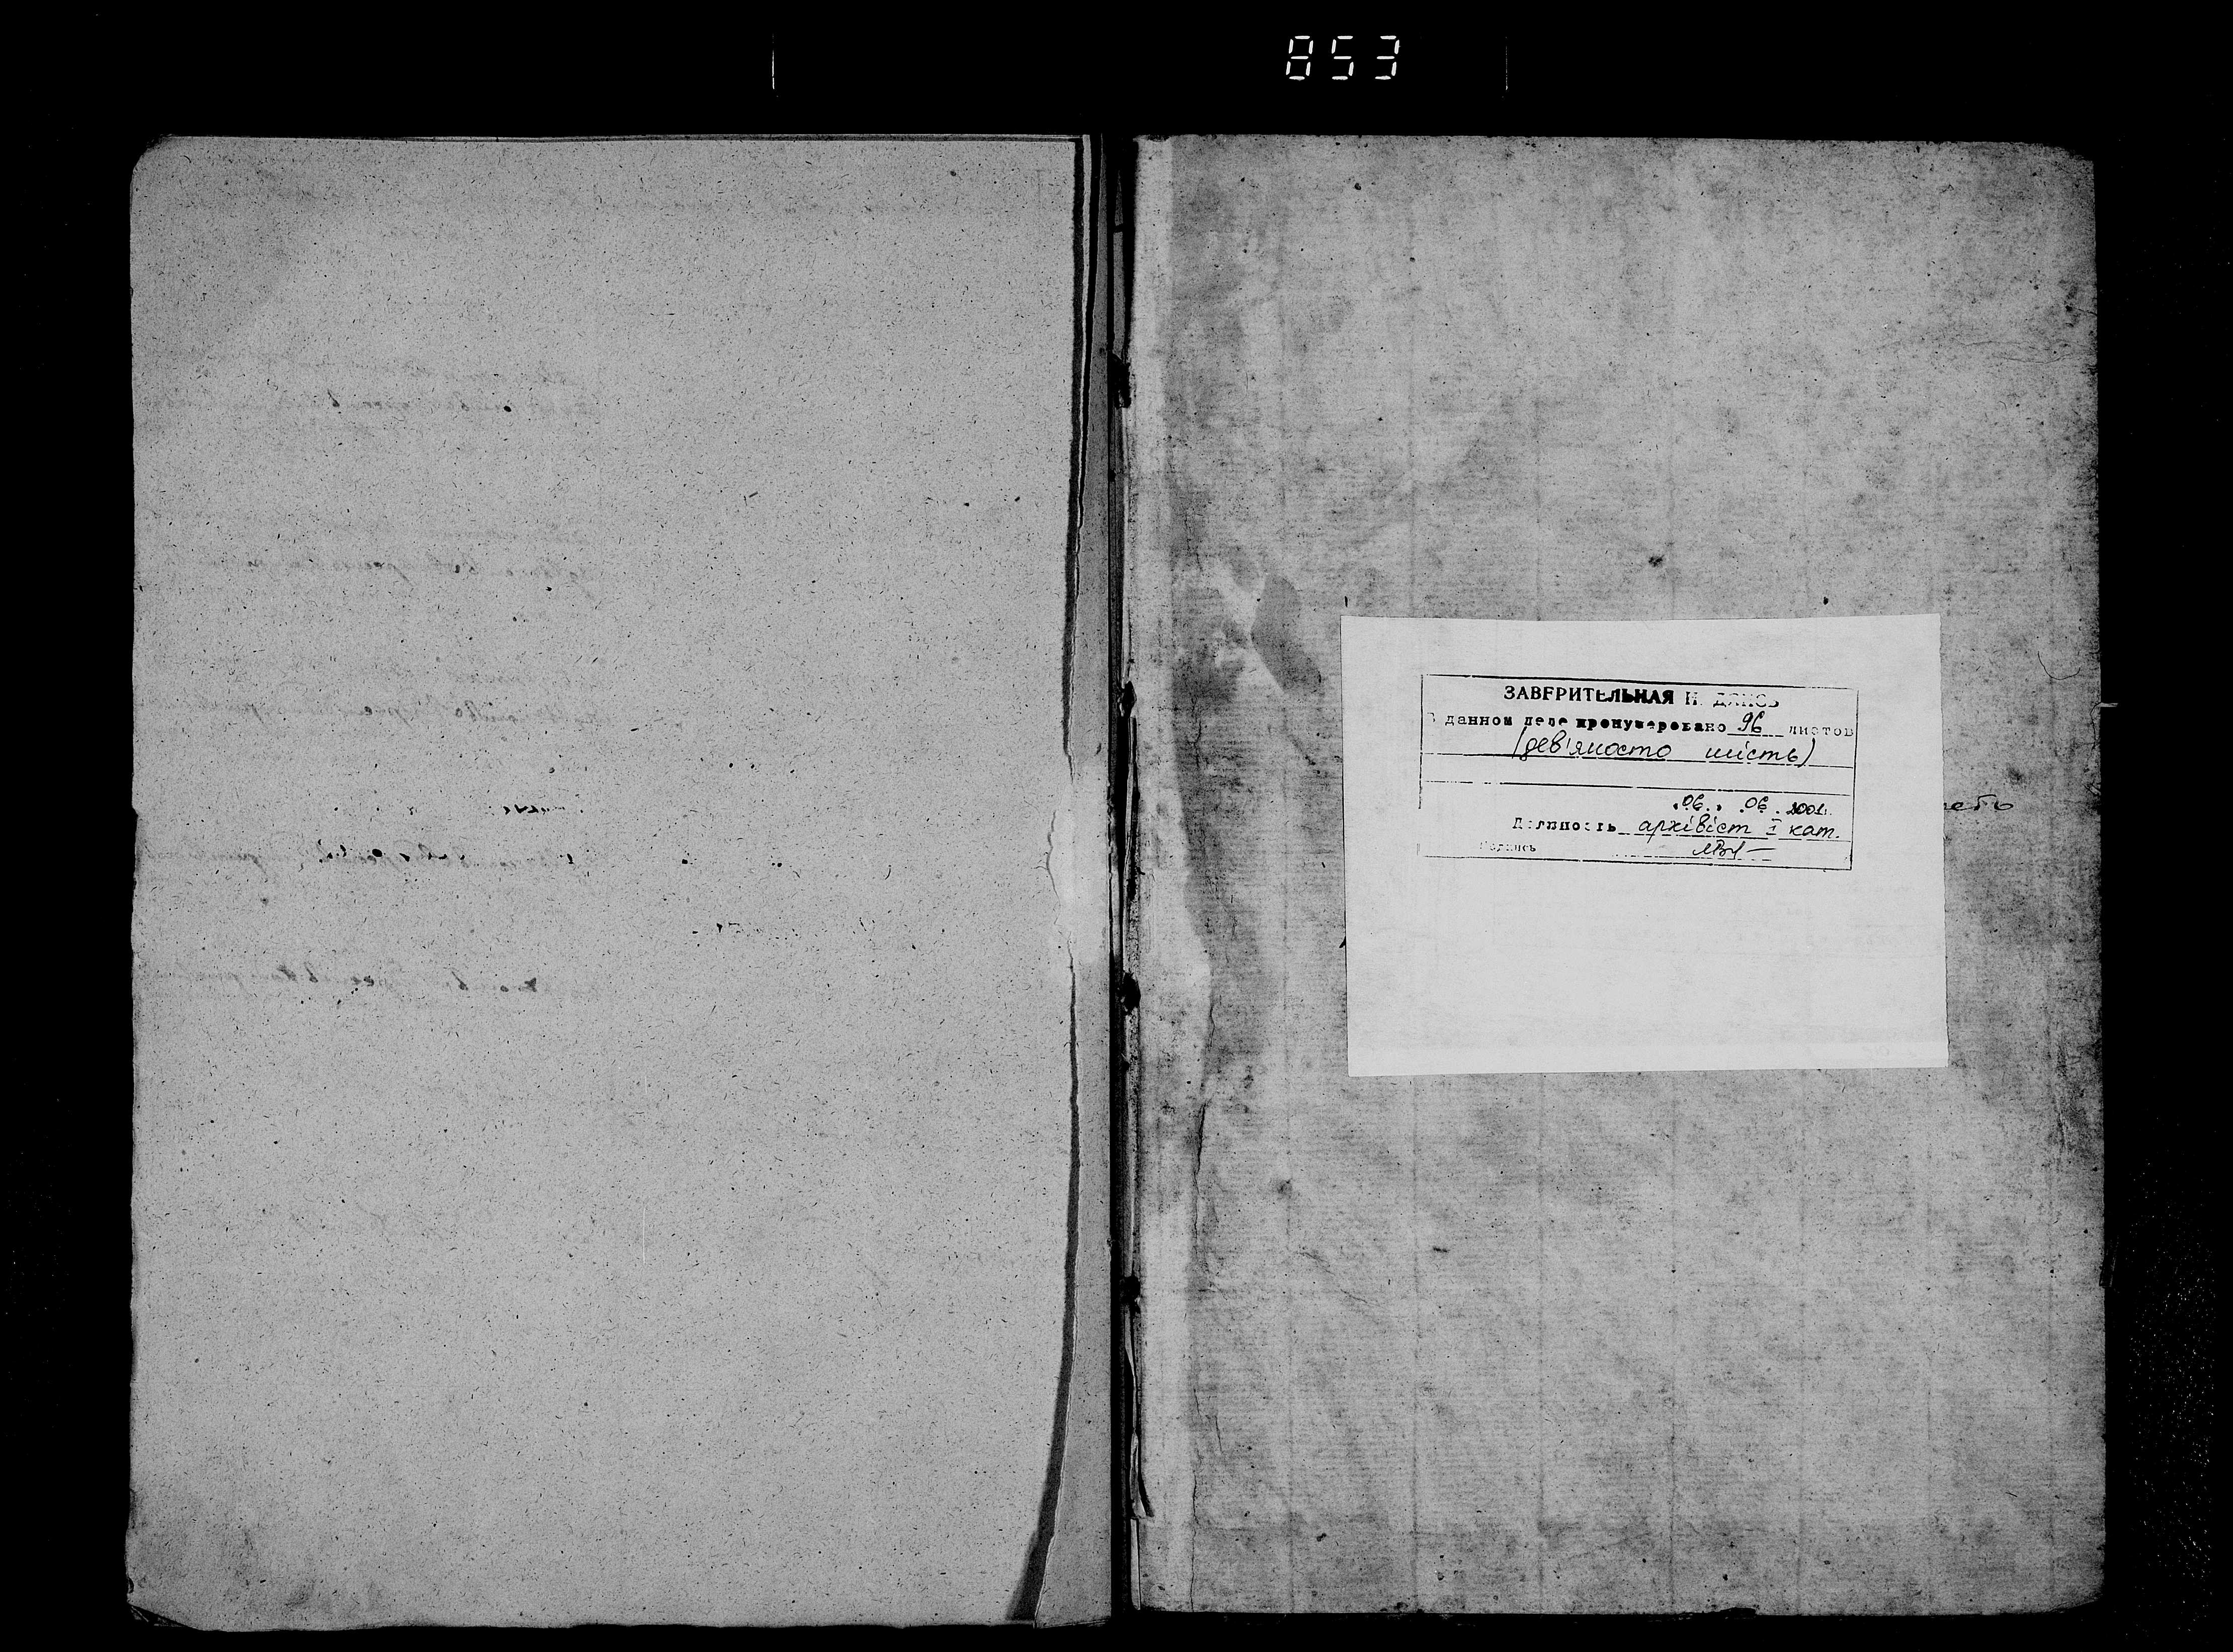 853
ЗАВЕРИТЕЛЬНАЯ НАДПИСЬ
В данном деле пронумеровано 96 листов
(дев'яносто шість)
"06" 06 2001.
Должность архівіст I кат.
Подпись